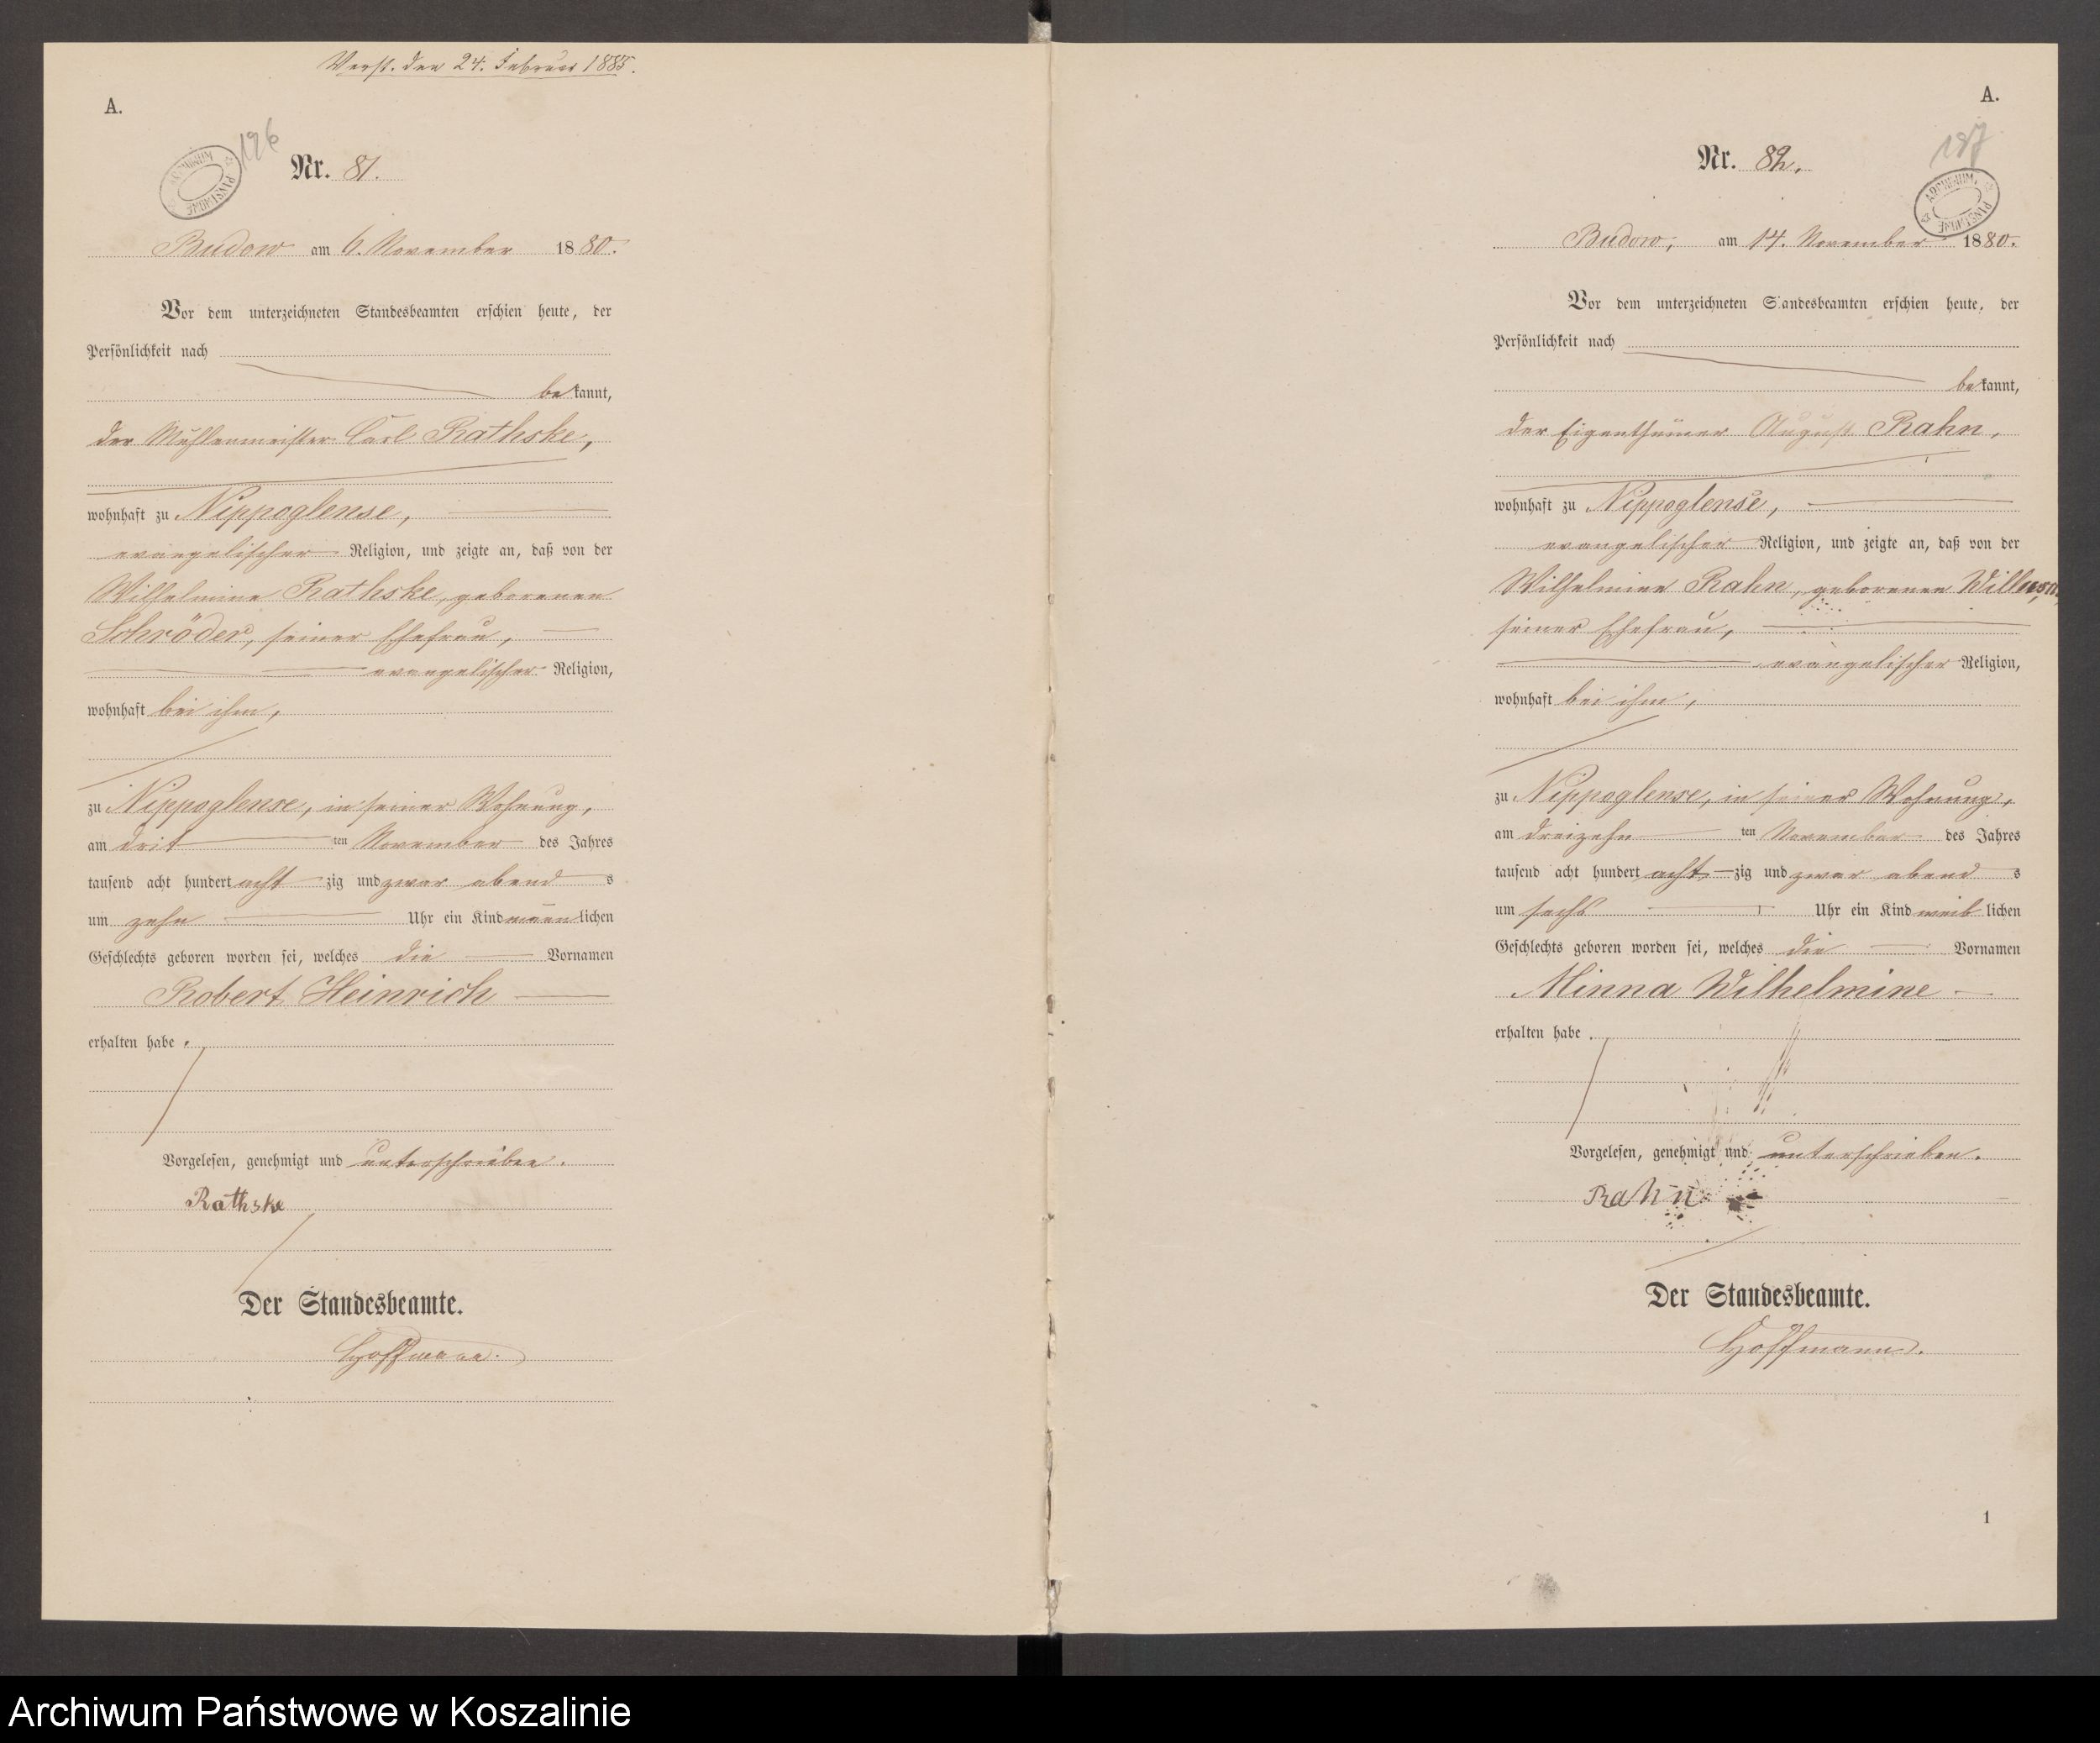 Verst. den 24. Februar 1885.
A.
196
ARCHIWUM PAŃSTWOWE
Nr. 81.
Budow am 6. November 1880.
Vor dem unterzeichneten Standesbeamten erschien heute, der
Persönlichkeit nach
bekannt,
der Mühlenmeister Carl Rathske,
wohnhaft zu Nippoglense,
evangelischer Religion, und zeigte an, daß von der
Wilhelmine Rathske, geborenen
Schröder, seiner Ehefrau,
evangelischer Religion,
wohnhaft bei ihm,
zu Nippoglense, in seiner Wohnung,
am dritten November des Jahres
tausend acht hundert achtzig und zwar abends
um zehn Uhr ein Kind männlichen
Geschlechts geboren worden sei, welches die Vornamen
Robert Heinrich
erhalten habe.
Vorgelesen, genehmigt und unterschrieben.
Rathske
Der Standesbeamte.
Hoffmann.
A.
197
ARCHIWUM PAŃSTWOWE
Nr. 82.
Budow, am 14. November 1880.
Vor dem unterzeichneten Standesbeamten erschien heute, der
Persönlichkeit nach
bekannt,
der Eigenthümer August Rahn,
wohnhaft zu Nippoglense,
evangelischer Religion, und zeigte an, daß von der
Wilhelmine Rahn, geborenen
seiner Ehefrau,
evangelischer Religion,
wohnhaft bei ihm,
zu Nippoglense, in seiner Wohnung,
am dreizehnten November des Jahres
tausend acht hundert achtzig und zwar abends
um sechs Uhr ein Kind weiblichen
Geschlechts geboren worden sei, welches die Vornamen
Minna Wilhelmine
erhalten habe.
Vorgelesen, genehmigt und unterschrieben.
Rahn
Der Standesbeamte.
Hoffmann.
1
Archiwum Państwowe w Koszalinie